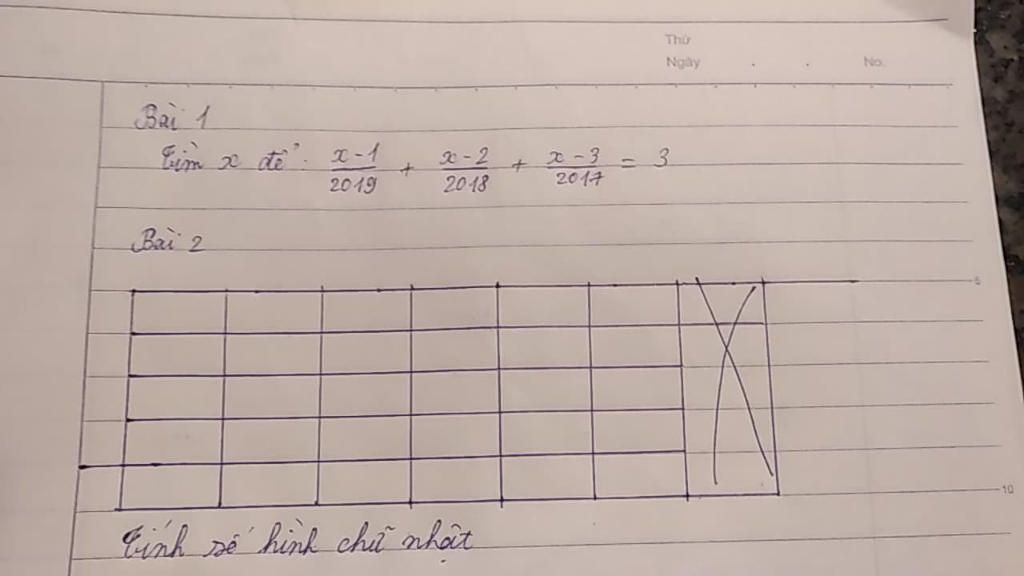 Thứ
Ngày . . No.
Bài 1
Tìm x để : x-1/2019 + x-2/2018 + x-3/2017 = 3
Bài 2
5
10
Tính số hình chữ nhật